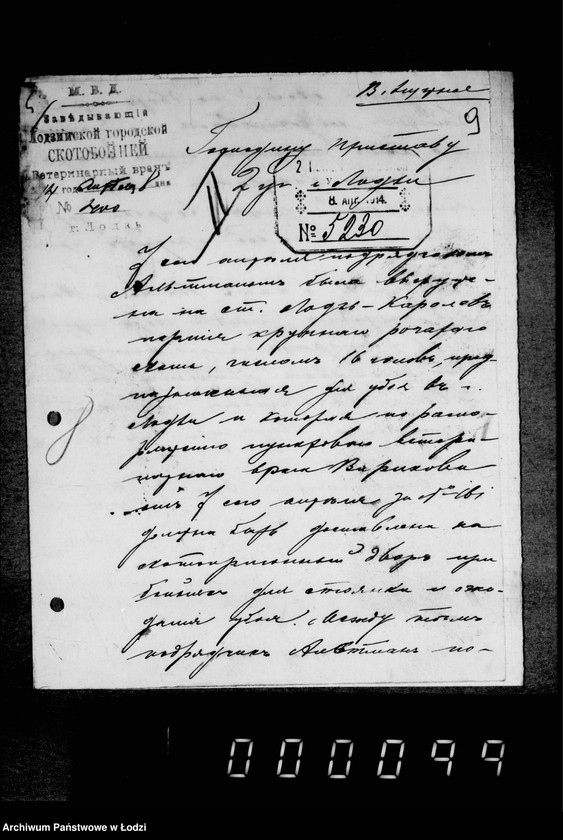 М. В. Д.
Завѣдывающій
Лодзинской городской
СКОТОБОЙНЕЙ
Ветеринарный врачъ
№
г. Лодзь
9
Господину Приставу
2 уч. г. Лодзи
21
8 АПР. 1914.
№ 5230
7 сего апрѣля подрядчикомъ
Альтманомъ была выгруже-
на на ст. Лодзь-Каролевъ
партія крупнаго рогатаго
скота, числомъ 16 головъ, пред-
назначенная для убоя въ г.
Лодзи и которая по распо-
ряженію пунктоваго ветери-
нарнаго врача
отъ 7 сего апрѣля за №
должна быть доставлена на
скотопригонный дворъ при
бойнѣ для стоянки и ожи-
данія убоя. Между тѣмъ
подрядчикъ Альтманъ по-
8
000099
Archiwum Państwowe w Łodzi